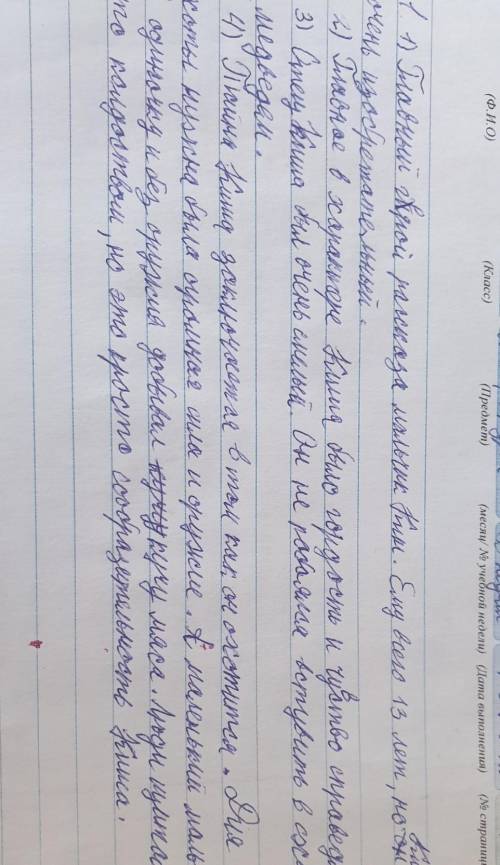 (Ф.И.О) (Класс) (Предмет) (месяц/ № учебной недели) (Дата выполнения) (№ страниц
1. 1) Главный герой рассказа мальчик Киш. Ему всего 13 лет, но он
очень изобретательный.
2) Главное в характере Киша было гордость и чувство справед
3) Отец Киша был очень смелый. Он не побоялся вступить в
медведем.
4) Тайна Киша заключается в том как он охотится. Для
хоты нужна была огромная сила и оружие. А маленький маль
одиночку и без оружия добывал кучу мяса. Люди
то колдоством, но это просто сообразительность Киша.